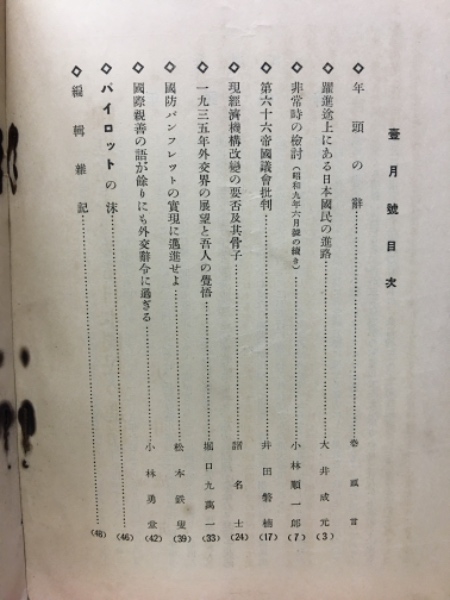 壹月號目次
◇年頭の辭…………卷頭言
◇躍進途上にある日本國民の進路…………大井成元(3)
◇非常時の檢討(昭和九年六月號の續き)…………小林順一郎(7)
◇第六十六帝國議會批判…………井田磐楠(17)
◇現經濟機構改變の要否及其骨子…………諸名士(24)
◇一九三五年外交界の展望と吾人の覺悟…………堀口九萬一(33)
◇國防パンフレツトの實現に邁進せよ…………松本鉄(39)
◇國際親善の語が餘りにも外交辭令に過ぎる…………小林勇堂(42)
◇パイロツトの沫…………(46)
◇編輯雜記…………(48)